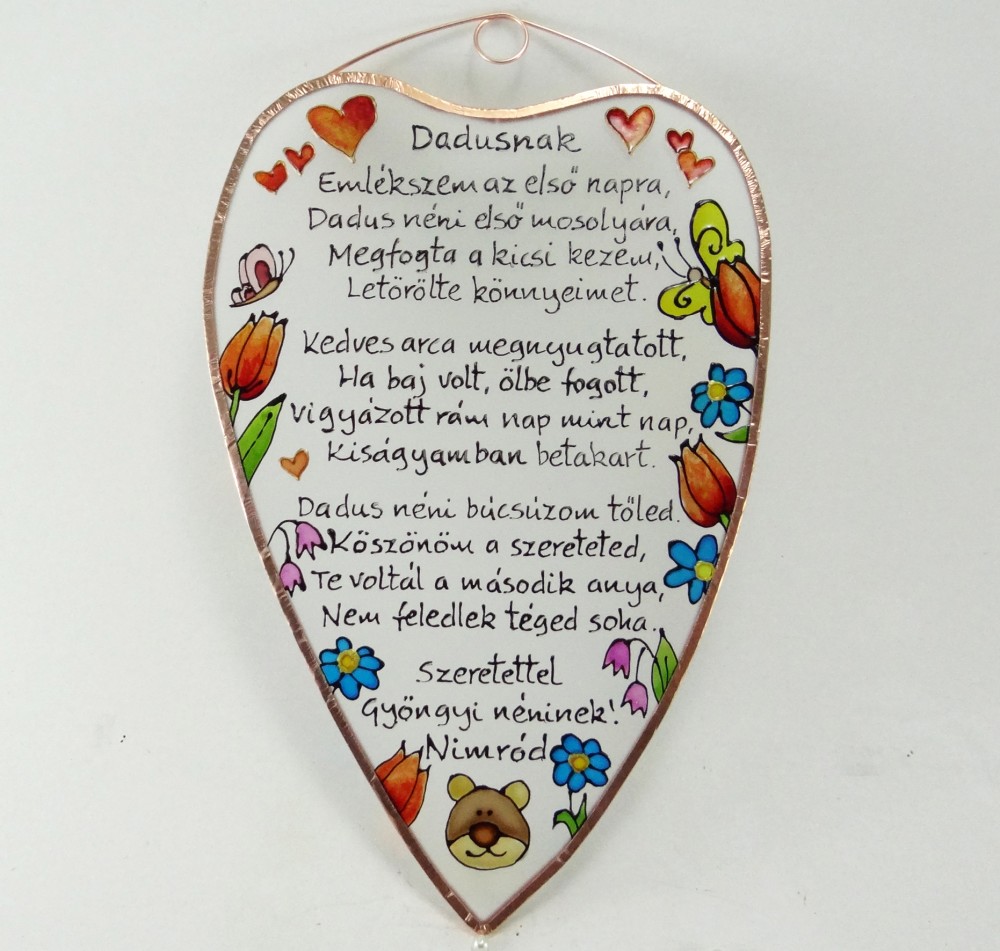 Dadusnak
Emlékszem az első napra,
Dadus néni első mosolyára,
Megfogta a kicsi kezem,
Letörölte könnyeimet.
Kedves arca megnyugtatott,
Ha baj volt, ölbe fogott,
Vigyázott rám nap mint nap,
Kiságyamban betakart.
Dadus néni búcsúzom tőled.
Köszönöm a szereteted,
Te voltál a második anya,
Nem feledlek téged soha.
Szeretettel
Gyöngyi néninek!
Nimród